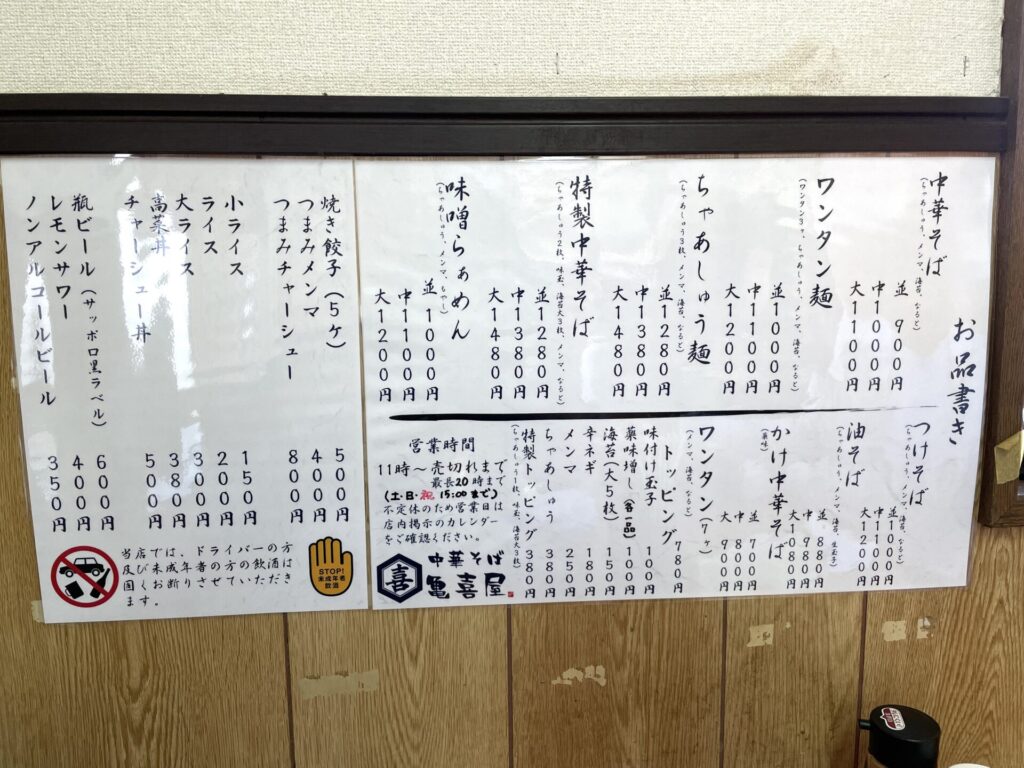 お品書き
中華そば
(ちゃあしゅう、メンマ、海苔、なると)
並 900円
中1000円
大1100円
ワンタン麺
(ワンタン3ケ、ちゃあしゅう、メンマ、海苔、なると)
並1000円
中1100円
大1200円
ちゃあしゅう麺
(ちゃあしゅう3枚、メンマ、海苔、なると)
並1280円
中1380円
大1480円
特製中華そば
(ちゃあしゅう2枚、味玉、海苔大3枚、メンマ、なると)
並1280円
中1380円
大1480円
味噌らぁめん
(ちゃあしゅう、メンマ、もやし)
並1000円
中1100円
大1200円
つけそば
(ちゃあしゅう、メンマ、海苔、なると)
並1000円
中1100円
大1200円
油そば
(ちゃあしゅう、メンマ、海苔、生玉子)
並 880円
中 980円
大1080円
かけ中華そば
(薬味)
並 700円
中 800円
大 900円
ワンタン(7ケ)
(メンマ、海苔、なると)
780円
トッピング
味付け玉子 100円
薬味増し(各一品) 100円
海苔(大5枚) 150円
辛ネギ 150円
メンマ 250円
ちゃあしゅう 350円
特製トッピング 380円
(ちゃあしゅう1枚、味玉、海苔大3枚)
営業時間
11時~売切れまで
最長20時まで
(土・日・祝 15:00まで)
不定休のため営業日は
店内掲示のカレンダー
をご確認ください。
喜
中華そば
亀喜屋
焼き餃子(5ケ) 500円
つまみメンマ 400円
つまみチャーシュー 800円
小ライス 150円
ライス 200円
大ライス 300円
高菜丼 380円
チャーシュー丼 500円
瓶ビール(サッポロ黒ラベル) 600円
レモンサワー 400円
ノンアルコールビール 350円
当店では、ドライバーの方
及び未成年者の方の飲酒は
固くお断りさせていただき
ます。
STOP!
未成年者
飲酒